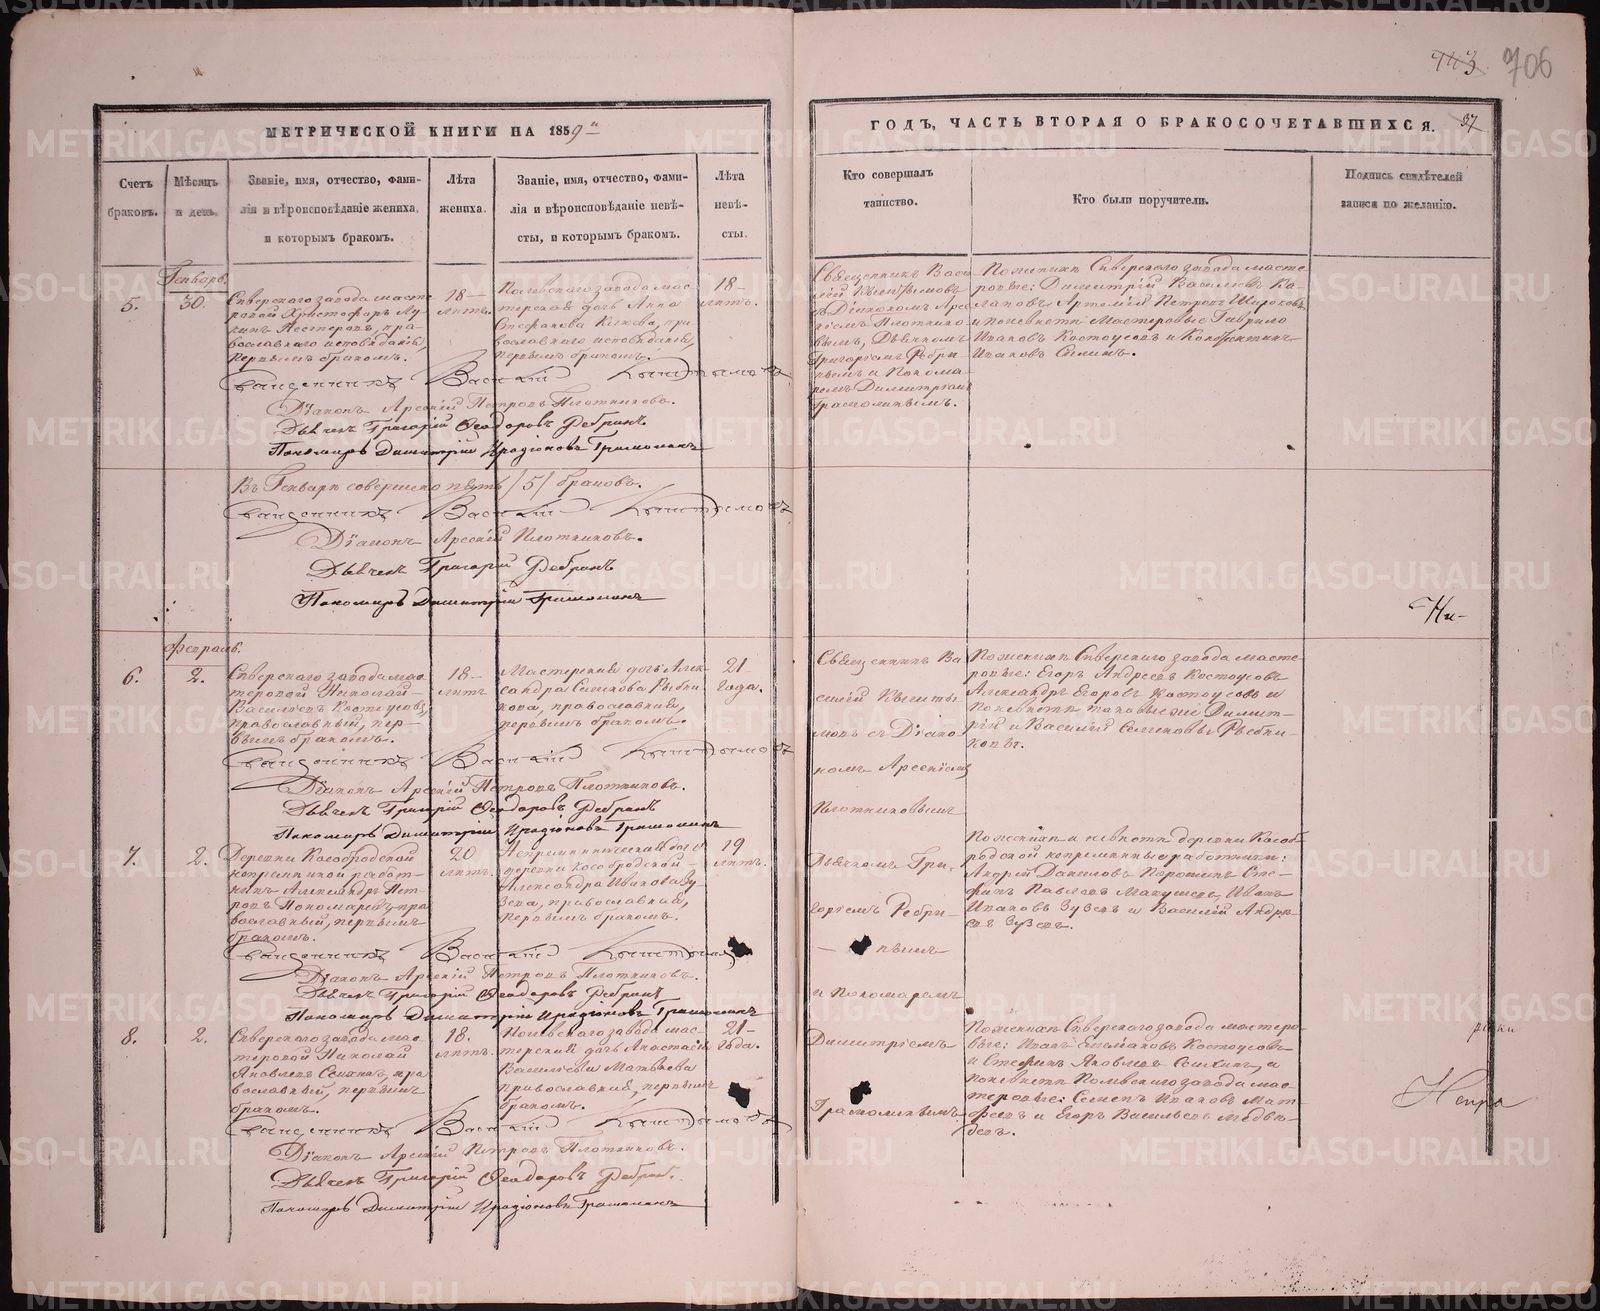 706
МЕТРИЧЕСКОЙ КНИГИ НА 1859й
ГОДЪ, ЧАСТЬ ВТОРАЯ О БРАКОСОЧЕТАВШИХСЯ.
Счетъ браковъ.
Мѣсяцъ и день.
Званіе, имя, отчество, фами-
лія и вѣроисповѣданіе жениха,
и которымъ бракомъ.
Лѣта
жениха.
Званіе, имя, отчество, фами-
лія и вѣроисповѣданіе невѣ-
сты, и которымъ бракомъ.
Лѣта
невѣ-
сты.
Кто совершалъ
таинство.
Кто были поручители.
Подпись свидѣтелей
записи по желанію.
Генварь.
5.
30.
Сѣверскаго завода масте-
ровой Христофоръ Лу-
кинъ Нестеровъ, пра-
вославнаго исповѣданія,
первымъ бракомъ.
18-
лѣтъ.
Полевскаго завода мас-
терская дочь Анна
Стефанова, пра-
вославнаго исповѣданія,
первымъ бракомъ.
18-
лѣтъ.
Священникъ Васи-
лій Кыштымовъ
съ Діакономъ Арсе-
ніемъ Плотнико-
вымъ, Дьячкомъ
Григоріемъ Ребри-
нымъ и Понома-
ремъ Димитріемъ
По женихѣ Сѣверскаго завода масте-
ровые: Димитрій Васильевъ
Артемій Петровъ
и по невѣстѣ Мастеровые Гаврило
Ивановъ Костоусовъ и Константинъ
Ивановъ
Священникъ Василій Кыштымовъ
Діаконъ Арсеній Петровъ Плотниковъ.
Дьячекъ Григорій Ѳеодоровъ Ребринъ
Пономарь Димитрій Иродіоновъ
Въ Генварѣ совершено пять /5/ браковъ.
Священникъ Василій Кыштымовъ
Діаконъ Арсеній Плотниковъ.
Дьячекъ Григорій Ребринъ
Пономарь Димитрій
Февраль.
6.
2.
Сѣверскаго завода мас-
теровой Николай
Васильевъ Костоусовъ,
православный, пер-
вымъ бракомъ.
18-
лѣтъ
Мастерская дочь Алек-
сандра Семенова Рыбни-
кова, православная,
первымъ бракомъ.
21
года.
Священникъ Ва-
силій Кышты-
мовъ съ Діако-
номъ Арсеніемъ
Плотниковымъ
По женихѣ Сѣверскаго завода масте-
ровые: Егоръ Андреевъ Костоусовъ
Александръ Егоровъ Костоусовъ и
по невѣстѣ таковые же Димит-
рій и Василій Семеновы Рыбни-
ковы.
Священникъ Василій Кыштымовъ
Діаконъ Арсеній Петровъ Плотниковъ.
Дьячекъ Григорій Ѳеодоровъ Ребринъ
Пономарь Димитрій Иродіоновъ
7.
2.
Деревни Кособродской
непремѣнной работ-
никъ Александръ Пет-
ровъ Пономаревъ, пра-
вославный, первымъ
бракомъ.
20
лѣтъ.
деревни Кособродской
Александра Иванова Зу-
зева, православная,
первымъ бракомъ.
19
лѣтъ.
Дьячкомъ Гри-
горіемъ Ребри-
нымъ
По женихѣ и невѣстѣ деревни Кособ-
родской непремѣнные работники:
Андрей Даниловъ Сте-
фанъ Павловъ Иванъ
Ивановъ Зузевъ и Василій Андре-
евъ Зузевъ.
Священникъ Василій
Діаконъ Арсеній Петровъ Плотниковъ.
Дьячекъ Григорій Ѳеодоровъ Ребринъ
Пономарь Димитрій Иродіоновъ
8.
2.
Сѣверскаго завода мас-
теровой Николай
Яковлевъ пра-
вославный, первымъ
бракомъ.
18.
лѣтъ.
Полевскаго завода мас-
терская дочь Анастасія
Васильева Матвѣева
православная, первымъ
бракомъ.
21-
года.
и Пономаремъ
Димитріемъ
По женихѣ Сѣверскаго завода мастеро-
вые: Иванъ Костоусовъ
и Стефанъ Яковлевъ и
по невѣстѣ Полевскаго завода мас-
теровые: Семенъ Ивановъ Мат-
вѣевъ и Егоръ Васильевъ Медвѣ-
девъ.
Священникъ Василій Кыштымовъ
Діаконъ Арсеній Петровъ Плотниковъ.
Дьячекъ Григорій Ѳеодоровъ Ребринъ.
Пономарь Димитрій Иродіоновъ
METRIKI.GASO-URAL.RU